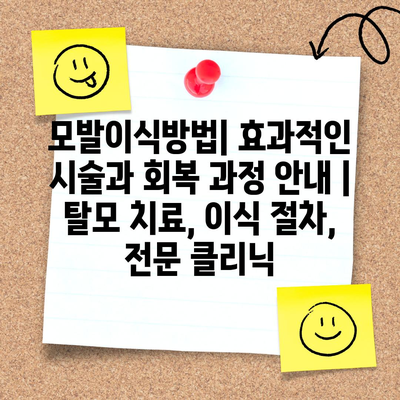 모발이식방법| 효과적인
시술과 회복 과정 안내 |
탈모 치료, 이식 절차,
전문 클리닉